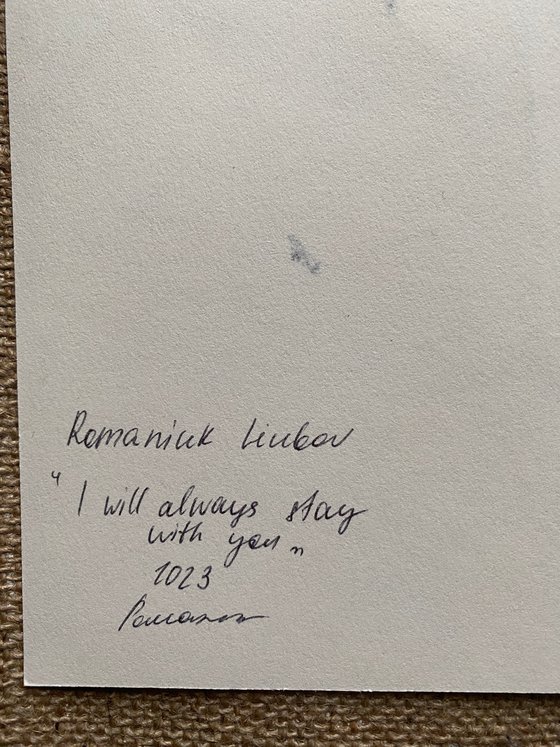 Romaniuk Liubov
" I will always stay
with you "
2023